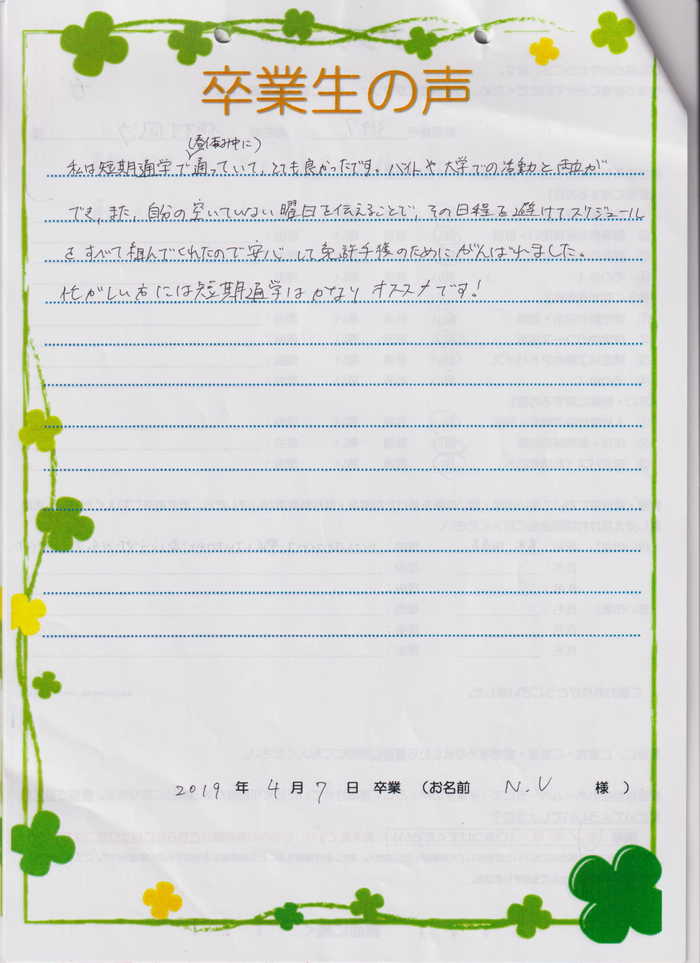 卒業生の声
(春休み中に)
私は短期通学で通っていて、とても良かったです。バイトや大学での活動と両立が
でき、また、自分の空いていない曜日を伝えることで、その日程を避けてスケジュール
をすべて組んでくれたので安心して免許取得のためにがんばれました。
忙がしい方には短期通学はかなりオススメです!
2019 年 4 月 7 日 卒業 (お名前 N.U 様 )